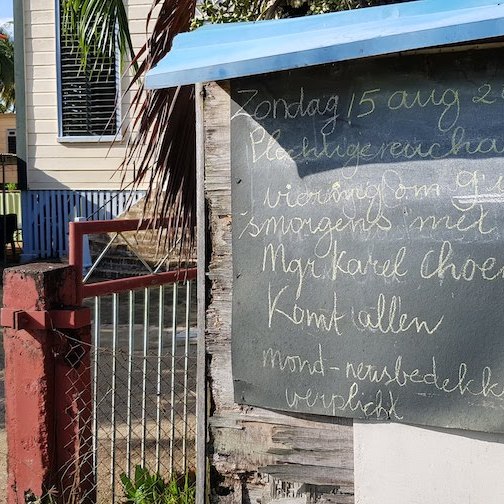 Zondag 15 aug 2
Plechtige eucha
viering om 9 u
smorgens met
Mgr. Karel Choe
Komt allen
mond-neusbedekk
verplicht